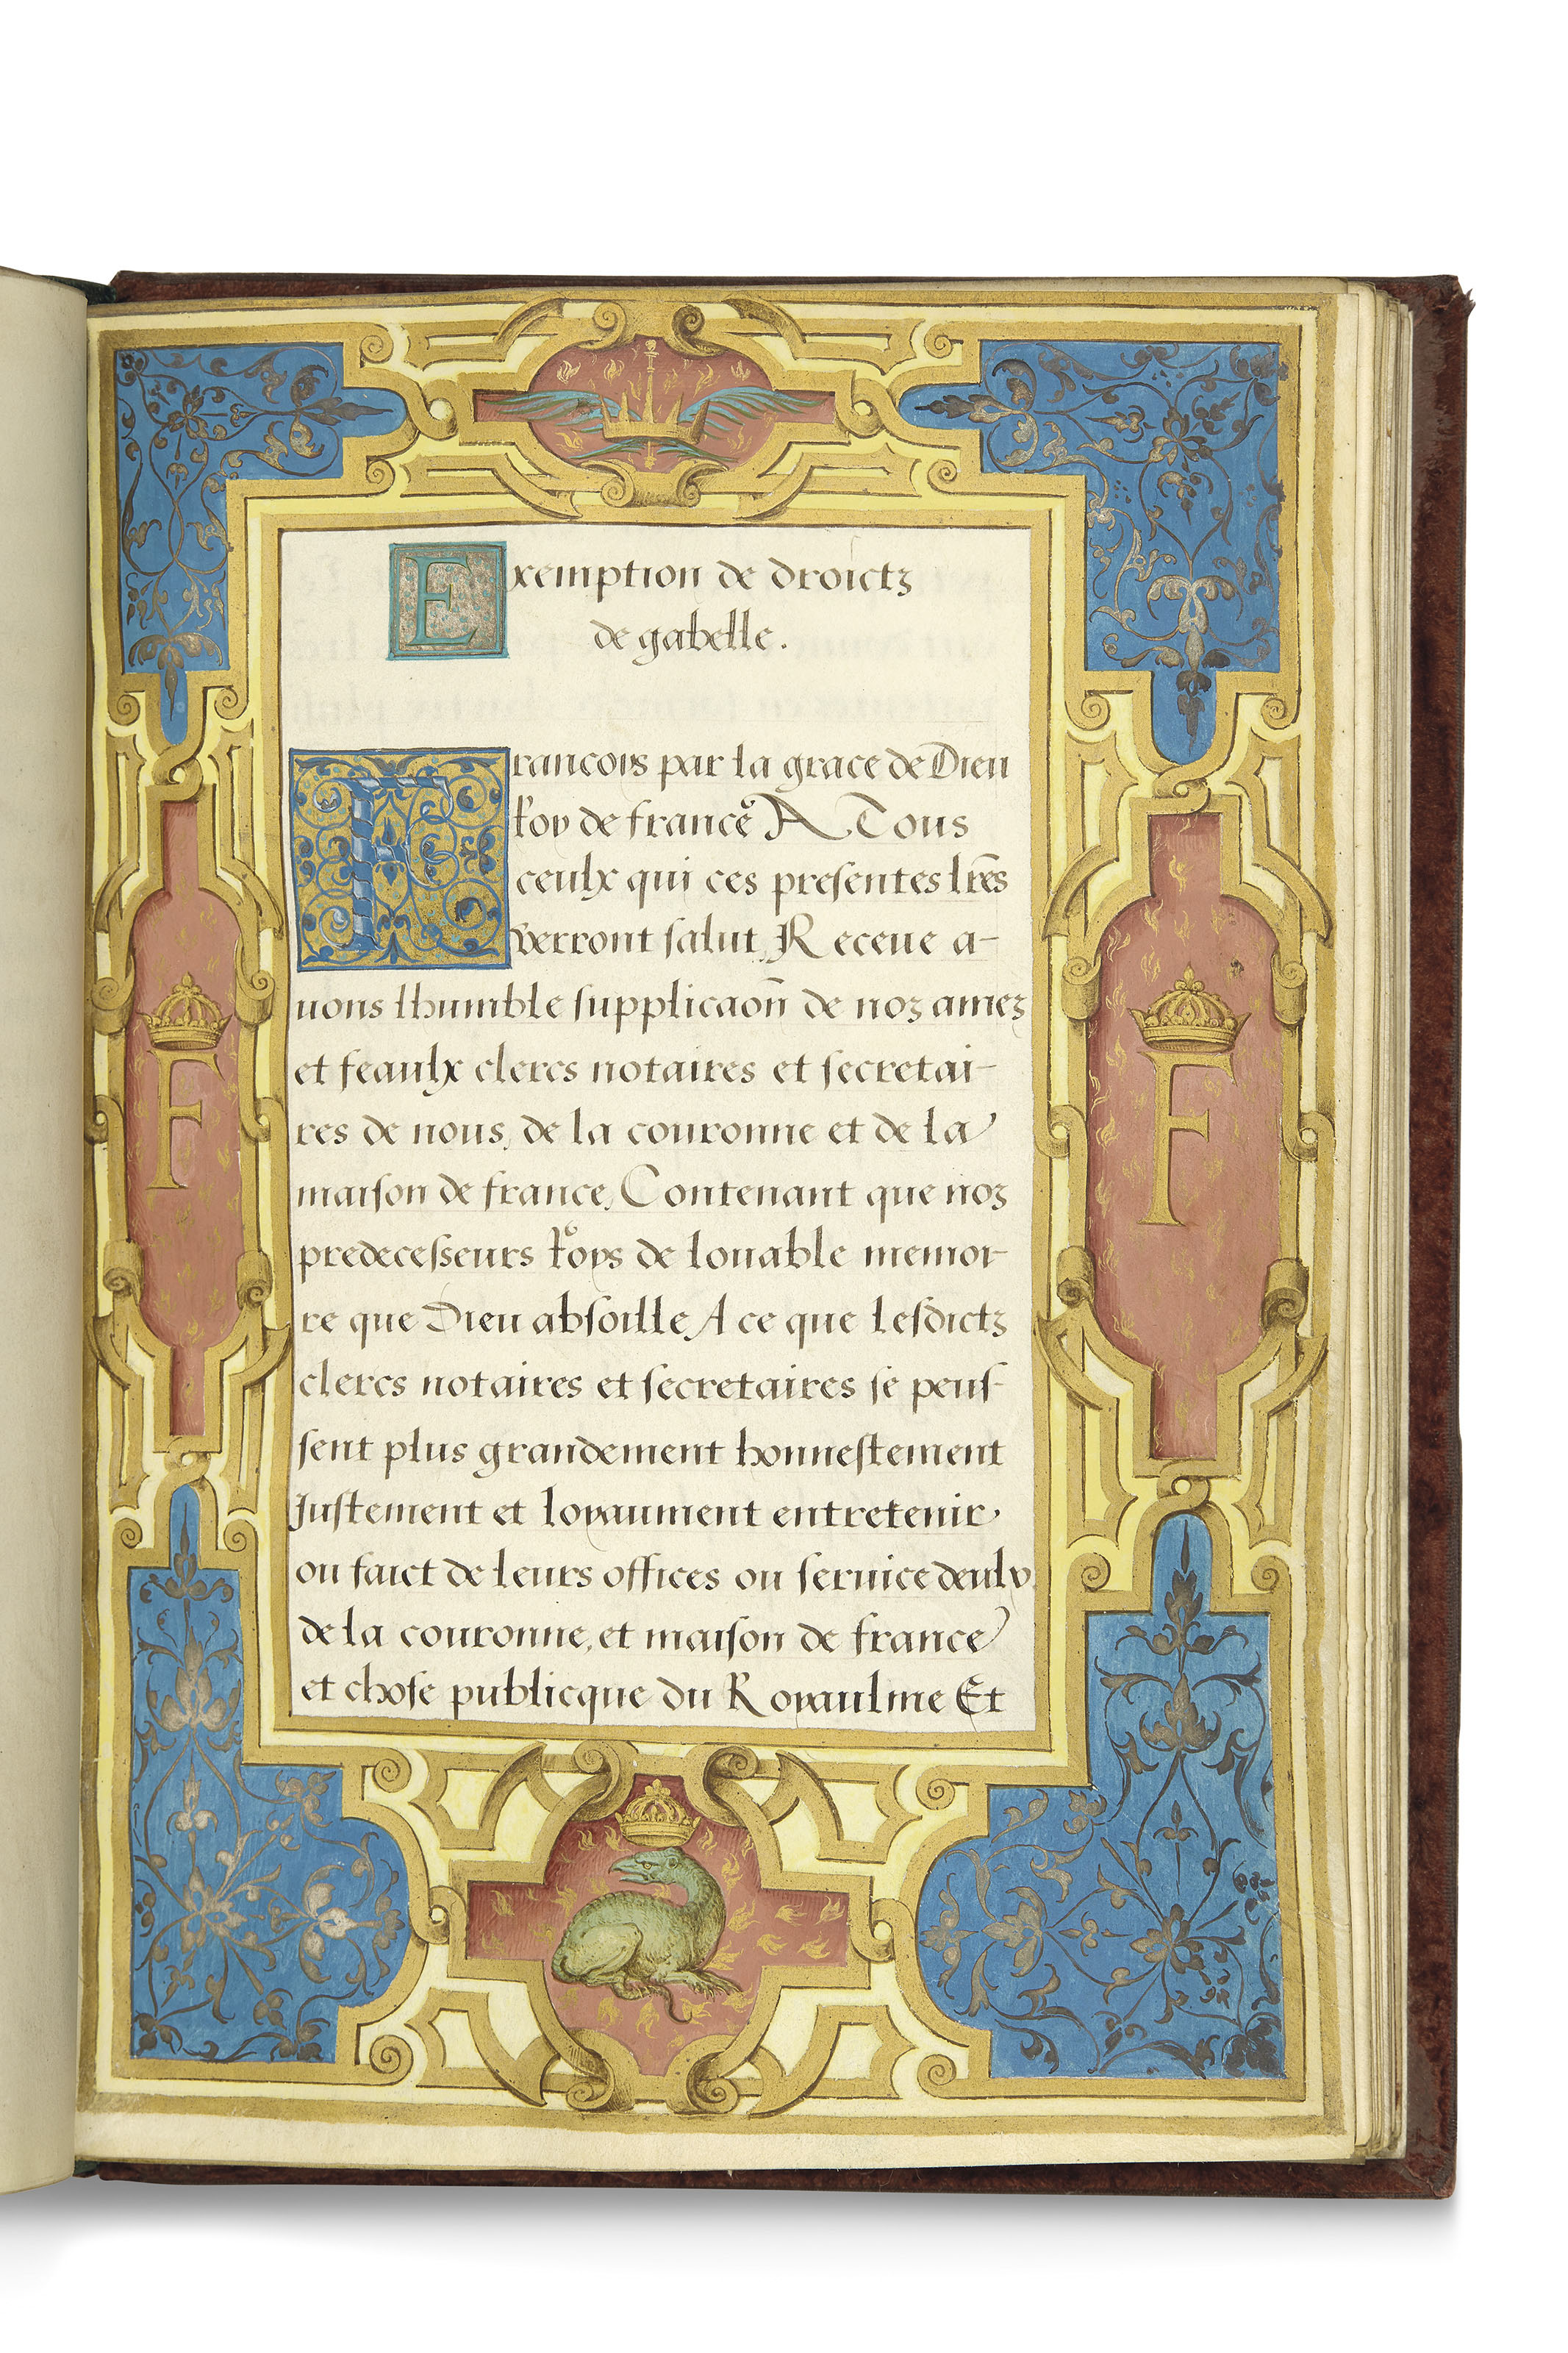 Exemption de droictz
de gabelle.
Francois par la grace de Dieu
Roy de france A Tous
ceulx qui ces presentes lr̃es
verront salut, Receue a-
uons lhumble supplicaoñ de noz amez
et feaulx clercs notaires et secretai-
res de nous, de la couronne et de la
maison de france, Contenant que noz
predecesseurs Roys de louable memoi-
re que Dieu absoille A ce que lesdictz
clercs notaires et secretaires se peus-
sent plus grandement honnestement
Justement et loyaument entretenir
ou faict de leurs offices ou seruice deulx,
de la couronne, et maison de france
et chose publicque du Royaulme Et
F
F